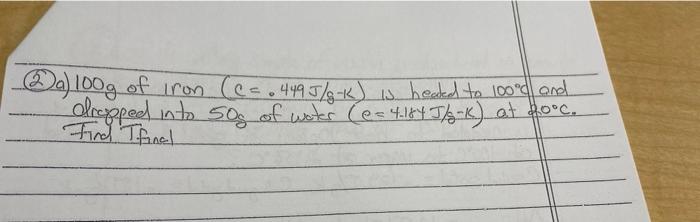 ② a) 100g of iron (c = .449 J/g-K) is heated to 100°C and
dropped into 50g of water (c = 4.184 J/g-K) at 20°C.
Find Tfinal